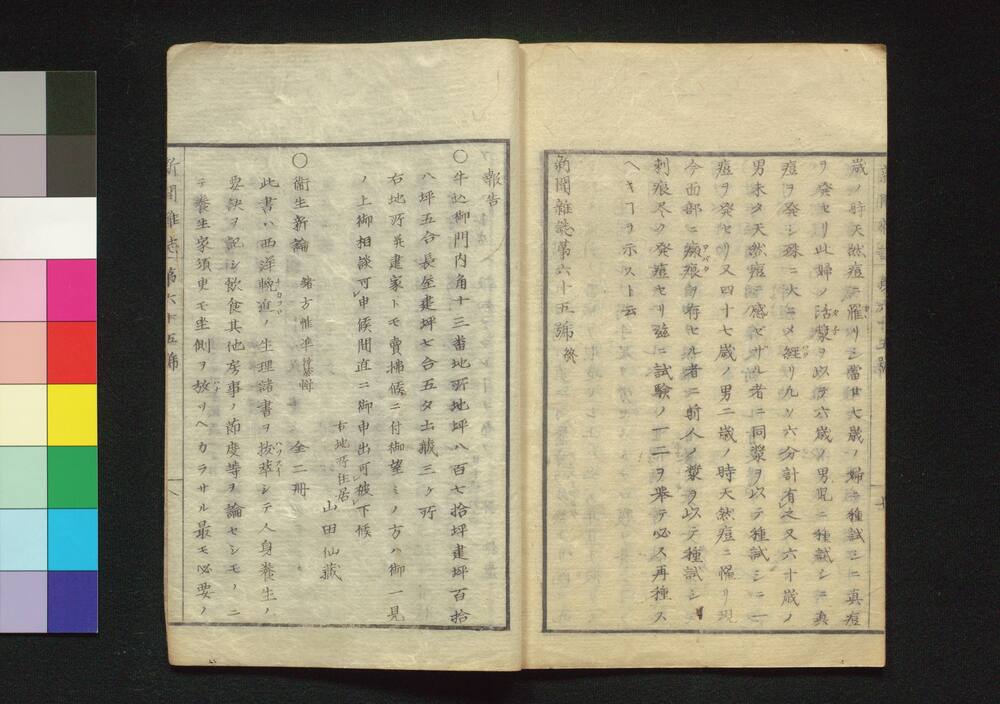 歳ノ時天然痘ニ罹リシ當廿七歳ノ婦ニ種試シニ真痘
ヲ発セリ此婦ノ活漿ヲ以テ六歳ノ男児ニ種試シニ真
痘ヲ発シ殊ニ大ニメ経リ九ソ六分計有之又六十歳ノ
男未タ天然痘ニ感セザル者ニ同漿ヲ以テ種試シニ一
痘ヲ発セリ又四十七歳ノ男二歳ノ時天然痘ニ罹リ現
今面部ニ瘢痕ヲ存セル者ニ前人ノ漿ヲ以テ種試シニ
刺痕尽ク発痘セリ茲ニ試験ノ一二ヲ挙テ必ス再種ス
ヘキヿヲ示スト云
新聞雑誌第六十五號終
報告
〇牛込御門内角十三番地所地坪八百七拾坪建坪百拾
八坪五合長屋建坪七合五タ土蔵三ヶ所
右地所并建家トモ賣拂候ニ付御望ミノ方ハ御一見
ノ上御相談可申候間直ニ御申出可被下候
右地所住居
山田仙蔵
〇衛生新論 緒方惟準 全二冊
此書ハ西洋輓近ノ生理諸書ヲ抜萃シテ人身養生ノ
要訣ヲ記シ飲食其他房事ノ節度等ヲ論セシモノニ
テ養生家須臾モ坐側ヲ放リヘカラサル最モ必要ノ
新聞雑誌 第六十五號
八